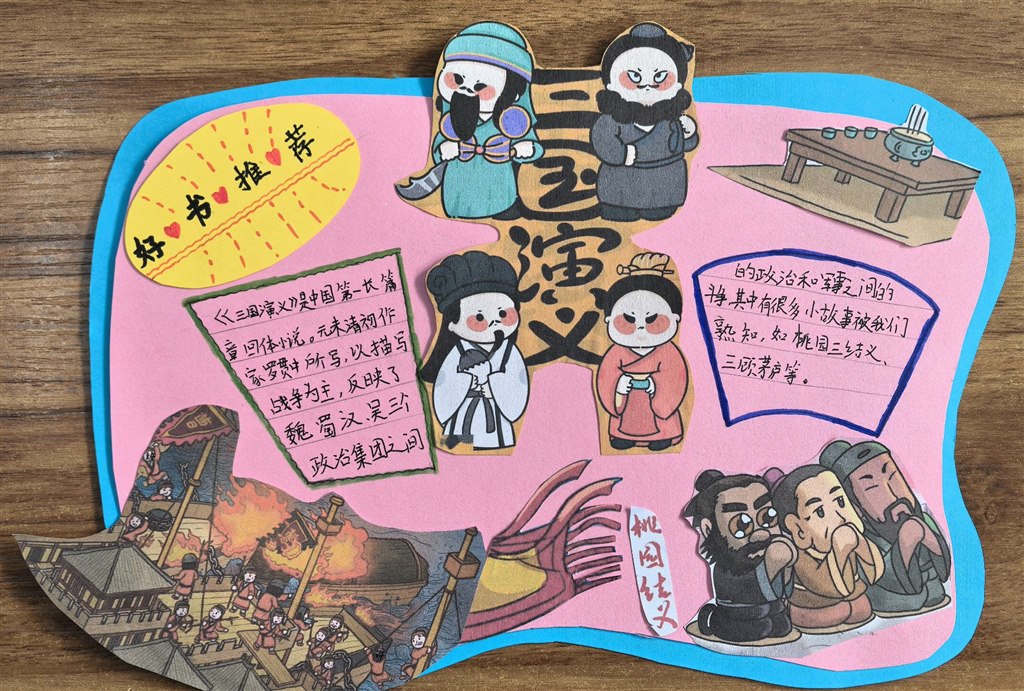 好书推荐
三国演义
《三国演义》是中国第一长篇
章回体小说。元末清初作
家罗贯中所写,以描写
战争为主,反映了
魏蜀汉、吴三个
政治集团之间
的政治和军事之间的
斗争其中有很多小故事被我们
熟知,如桃园三结义、
三顾茅庐等。
桃园结义